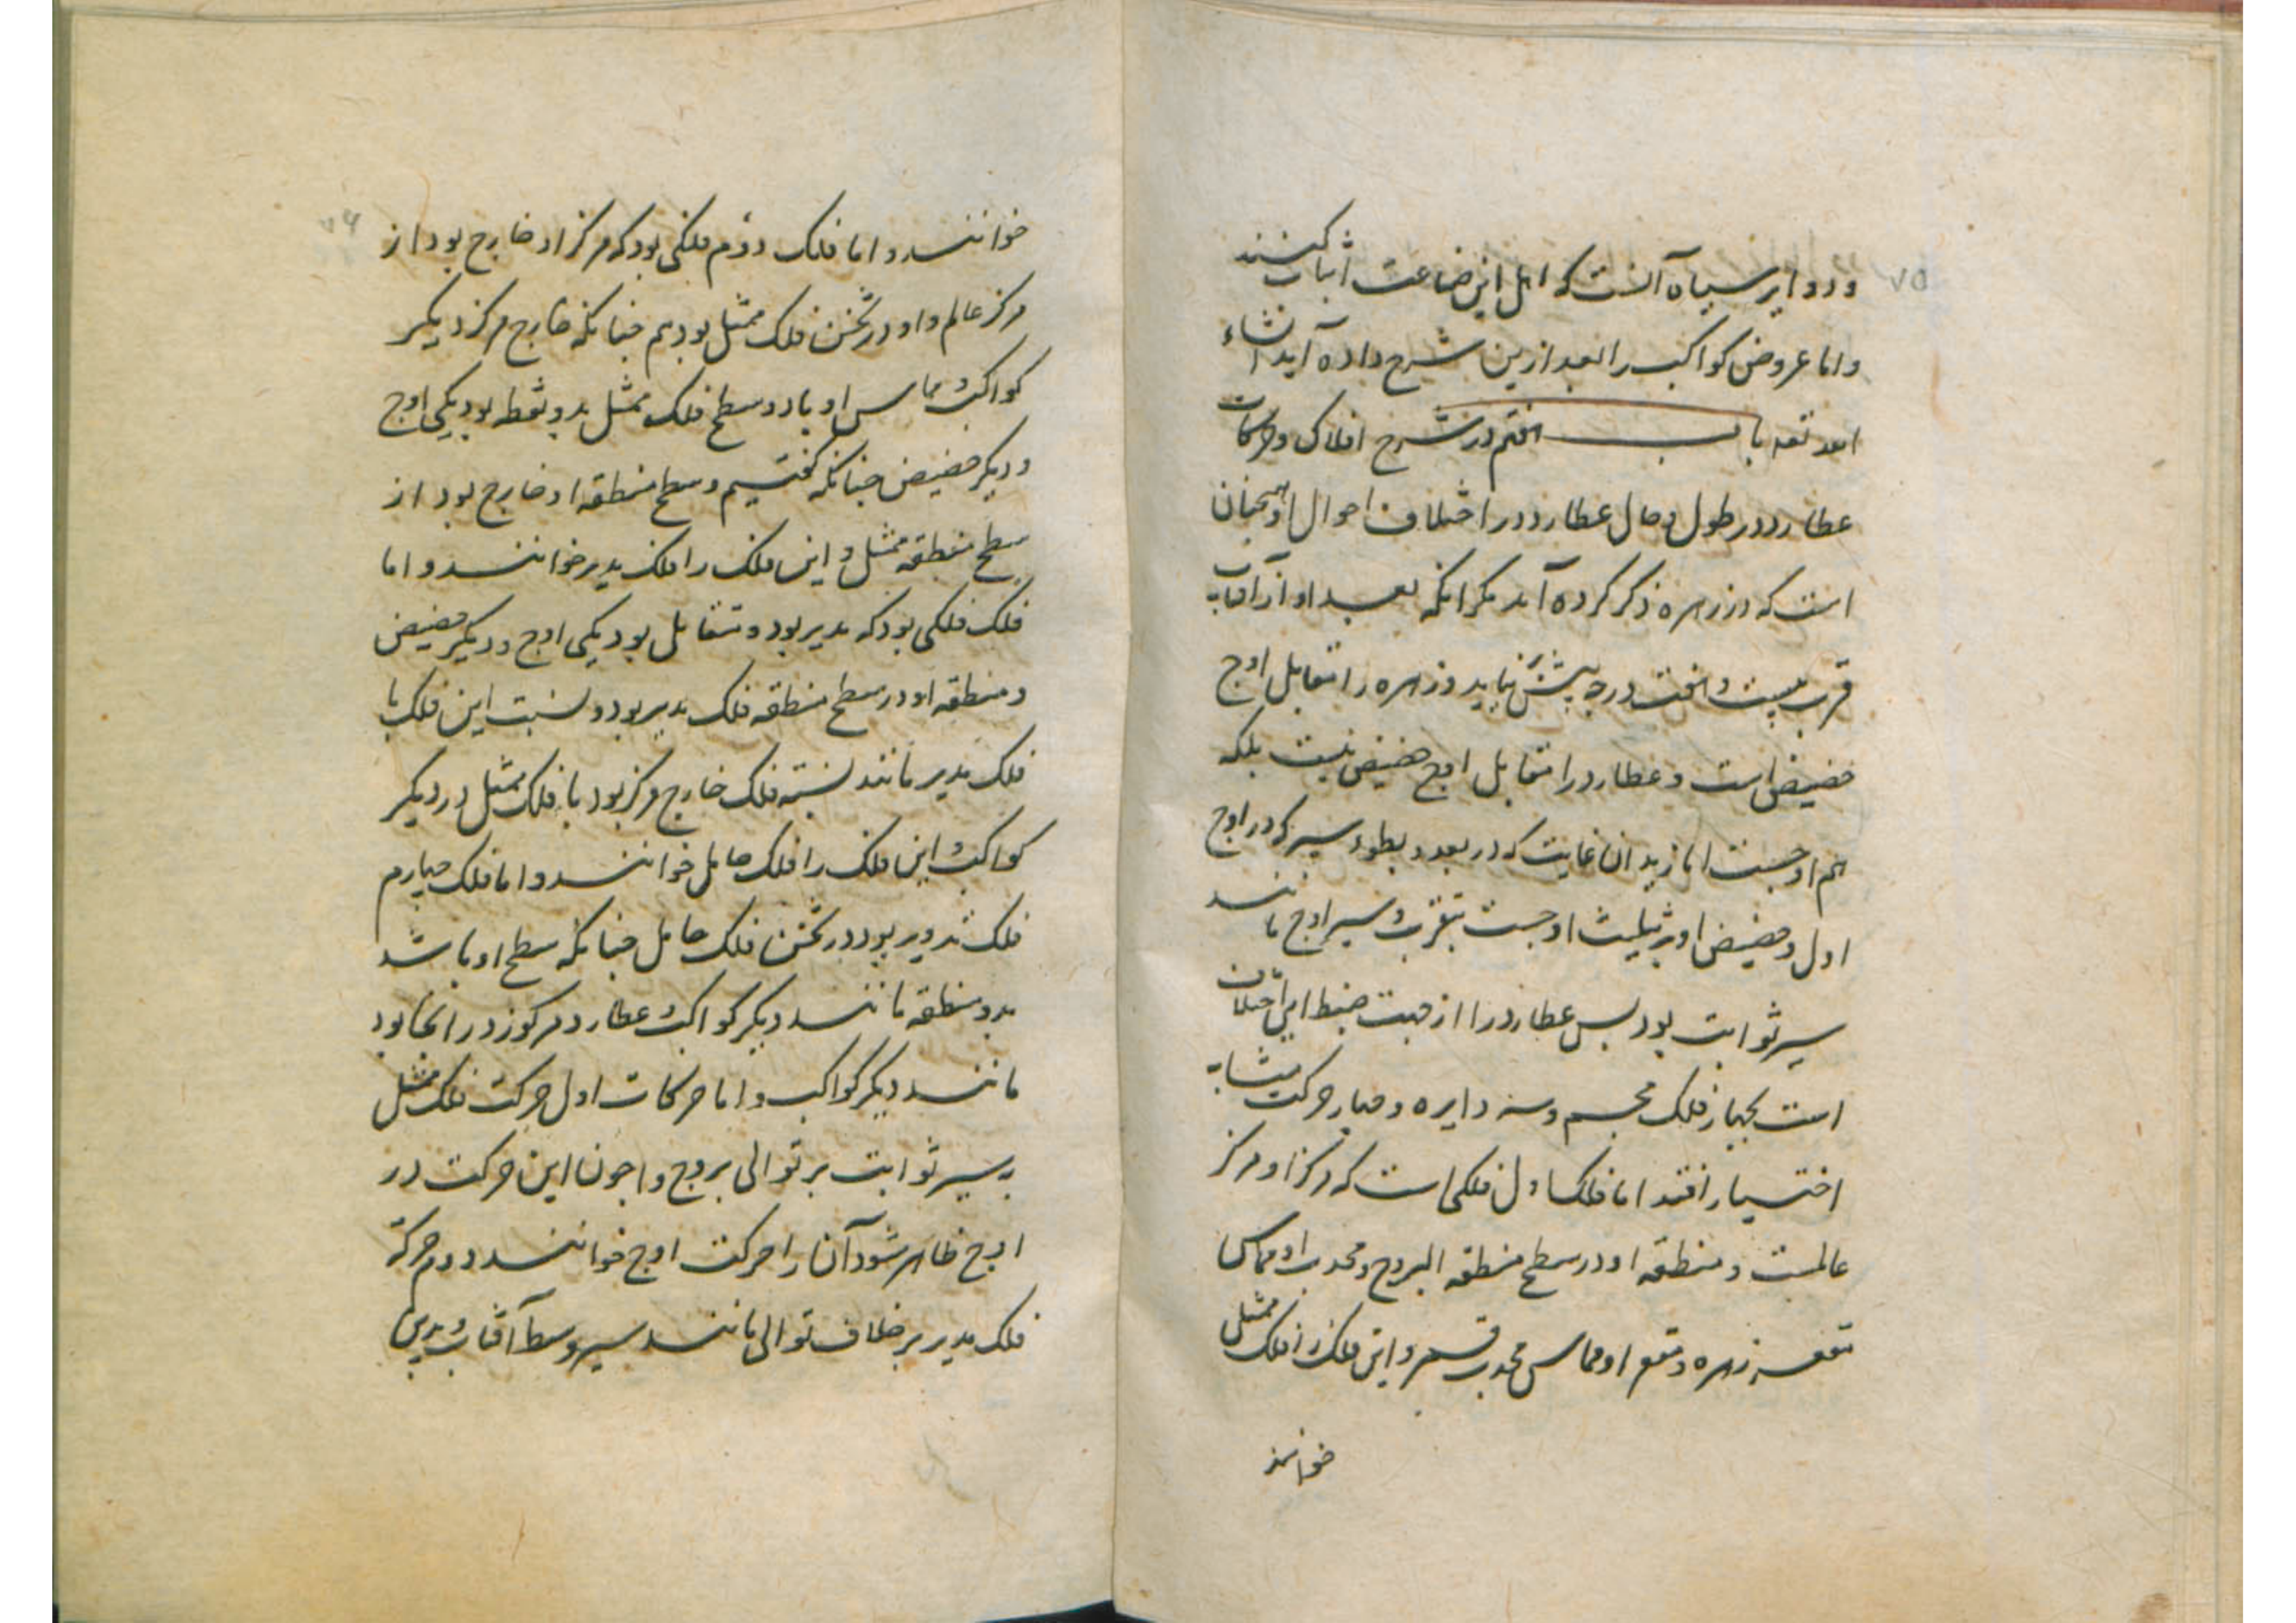 ۷۵
ودوایر سیاه آنست که اهل این صناعت اثبات کنند
واما عروض کواکب را بعد ازین شرح داده آید انشاء
الله تعه باب هفتم در شرح افلاک وحرکات
عطارد در طول وحال عطارد در اختلاف احوال او همچنان
است که در زهره ذکر کرده آمد مکر انکه بعد او از آفتاب
قرب بیست و هفت درجه پیش نیاید وزهره را مقابل اوج
حضیض است وعطارد را مقابل اوج حضیض نیست بلکه
هم اوجست اما نه بدان غایت که در بعد وبطو سیر که در اوج
اول وحضیض او بتثلیث اوجست بتقرب وسیر اوج مانند
سیر ثوابت بود بس عطارد را از جهت ضبط این اختلاف
است بچهار فلک مجسم وسه دایره وچهار حرکت متشابه
اختیار افتد اما فلک اول فلکی است که مرکز او مرکز
عالمست ومنطقه او در سطح منطقه البروج ومحدب او مماس
مقعر زهره ومقعر او مماس محدب قمر واین فلک را فلک ممثل
خوانند
۷۶
خوانند واما فلک دوم فلکی بود که مرکز او خارج بود از
مرکز عالم واو در ثخن فلک ممثل بود هم چنانکه خارج مرکز دیکر
کواکب مماس او با دو سطح فلک ممثل بدو نقطه بود یکی اوج
ودیکر حضیض چنانکه کفتیم وسطح منطقه او خارج بود از
سطح منطقه ممثل واین فلک را فلک مدیر خوانند واما
فلک فلکی بود که مدیر بود ومتقابل بود یکی اوج ودیکر حضیض
ومنطقه او در سطح منطقه فلک مدیر بود ونسبت این فلک با
فلک مدیر مانند نسبته فلک خارج مرکز بود با فلک ممثل در دیکر
کواکب این فلک را فلک حامل خوانند واما فلک چهارم
فلک تدویر بود در ثخن فلک حامل چنانکه سطح او باشد
بدو منطقه مانند دیکر کواکب عطارد مرکوز در انجا بود
مانند دیکر کواکب واما حرکات اول حرکت فلک ممثل
به سیر ثوابت بر توالی بروج واچون این حرکت در
اوج ظاهر شود آن را حرکت اوج خوانند دوم حرکة
فلک مدیر بر خلاف توالی مانند سیر وسط آفتاب وبدین